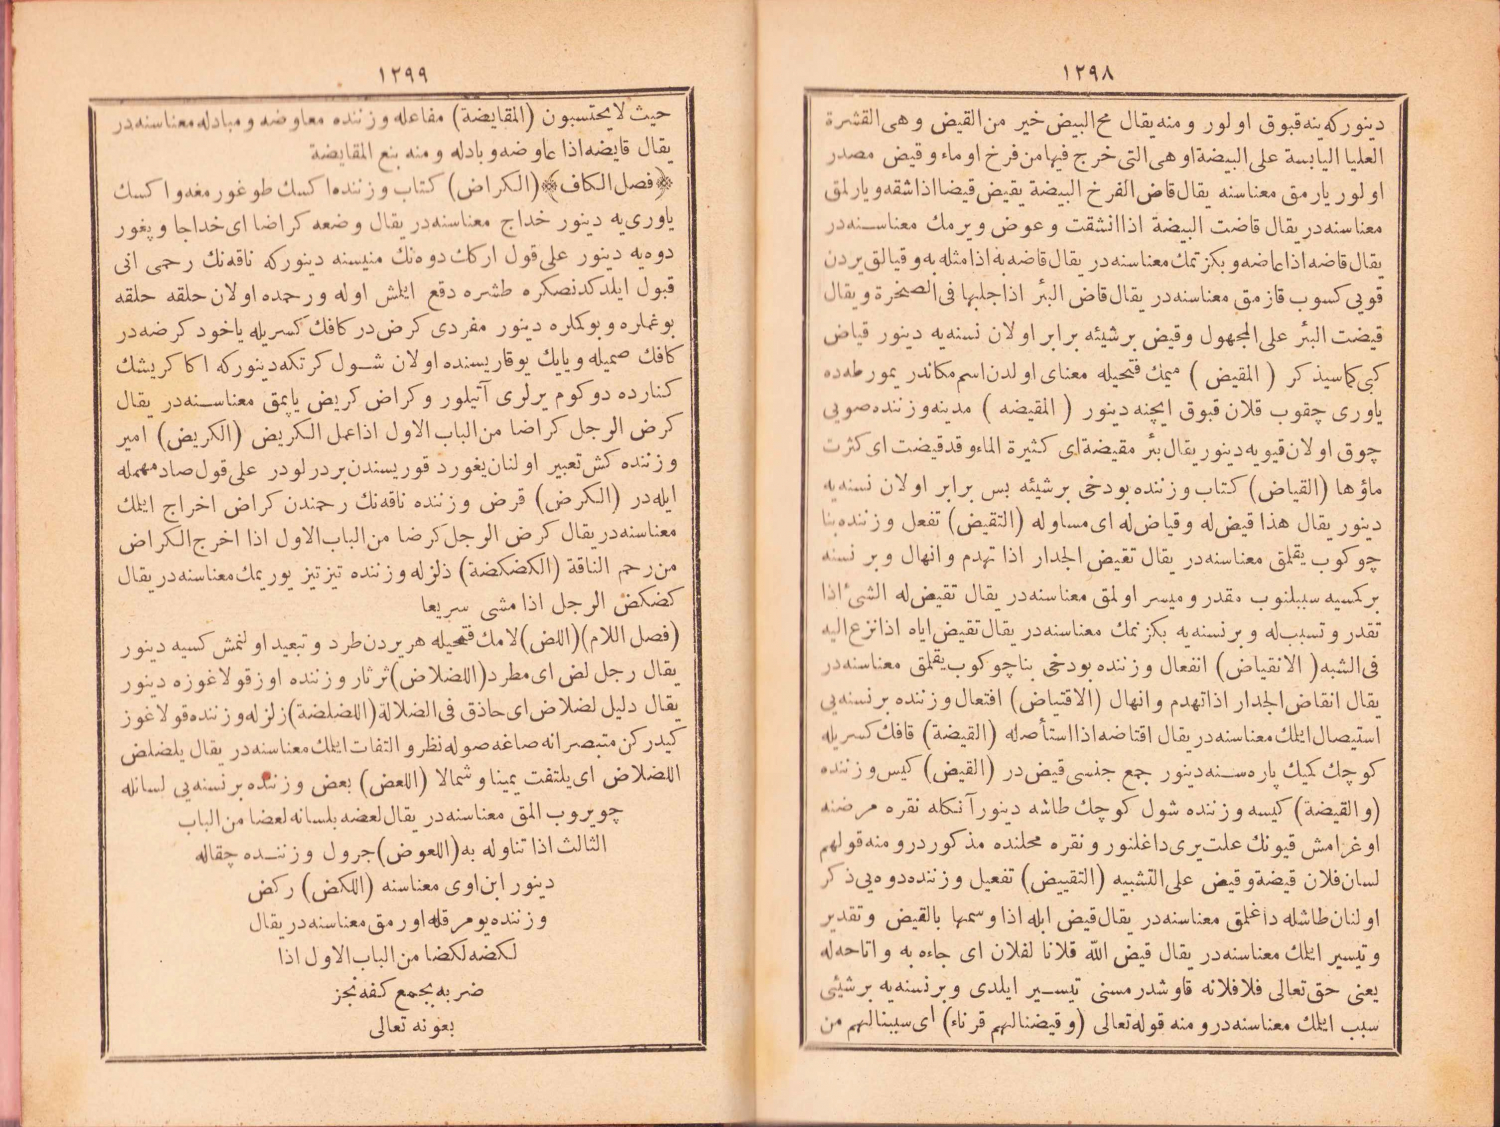 ١٢٩٨
دينوركه ينه قبوق اولور ومنه يقال مح البيض خير من القيض وهى القشرة
العليا اليابسة على البيضة او هى التى خرج فيها من فرخ او ماء وقيض مصدر
اولور يارمق معناسنه يقال قاض الفرخ البيضة يقيض قيضا اذا شقه و يارلمق
معناسنه در يقال قاضت البيضة اذا انشقت وعوض ويرمك معناسنه در
يقال قاضه اذا عاضه و بكزتمك معناسنه در يقال قاضه به اذا مثله به و قيالق يردن
قويى كسوب قازمق معناسنه در يقال قاض البئر اذا جلبها فى الصخرة و يقال
قيضت البئر على المجهول وقيض برشيئه برابر اولان نسنه يه دينور قياض
كبى كما سيذكر ( المقيض ) ميمك فتحيله معناى اولدن اسم مكاندر يمورطه ده
ياورى چقوب قلان قبوق ايچنه دينور ( المقيضه ) مدينه وزننده صويى
چوق اولان قيويه دينور يقال بئر مقيضة اى كثيرة الماء وقد قيضت اى كثرت
ماؤها (القياض) كتاب وزننده بودخى برشيئه بس برابر اولان نسنه يه
دينور يقال هذا قيض له وقياض له اى مساو له (التقيض) تفعل وزننده بنا
چوكوب يقلمق معناسنه در يقال تقيض الجدار اذا تهدم وانهال وبر نسنه
بركمسيه سببلنوب مقدر وميسر اولمق معناسنه در يقال تقيض له الشئ اذا
تقدر وتسبب له وبر نسنه يه بكزنمك معناسنه در يقال تقيض اياه اذا نزع اليه
فى الشبه ( الانقياض) انفعال وزننده بودخى بنا چوكوب يقلمق معناسنه در
يقال انقاض الجدار اذا تهدم وانهال (الاقتياض) افتعال وزننده بر نسنه يى
استيصال ايتمك معناسنه در يقال اقتاضه اذا استأصله (القيضة) قافك كسريله
كوچك كميك پاره سنه دينور جمع جنسى قيض در (القيض) كيس وزننده
(والقيضة) كيسه وزننده شول كوچك طاشه دينور آنكله نقره مرضنه
اوغرامش قيونك علت يرى داغلنور و نقره محلنده مذكوردر ومنه قولهم
لسان فلان قيضة وقيض على التشبيه (التقييض) تفعيل وزننده دوه يى ذكر
اولنان طاشله داغلمق معناسنه در يقال قيض ابله اذا وسمها بالقيض وتقدير
وتيسير ايتمك معناسنه در يقال قيض الله فلانا لفلان اى جاءه به واتاحه له
يعنى حق تعالى فلا فلانه قاوشدرمسنى تيسير ايلدى وبر نسنه يه برشيئى
سبب ايتمك معناسنه در ومنه قوله تعالى (وقيضنا لهم قرناء) اى سببنا لهم من
١٢٩٩
حيث لا يحتسبون (المقايضة) مفاعله وزننده معاوضه ومبادله معناسنه در
يقال قايضه اذا عاوضه وبادله ومنه بيع المقايضة
﴿فصل الكاف﴾ (الكراض) كتاب وزننده اكسك طوغورمغه و اكسك
ياورى يه دينور خداج معناسنه در يقال وضعه كراضا اى خداجا و بغور
دوه يه دينور على قول اركك دوه نك منيسنه دينوركه ناقه نك رحمى انى
قبول ايلدكدنصكره طشره دفع ايتمش اوله و رحمده اولان حلقه حلقه
بوغملره و بوكملره دينور مفردى كرض در كافك كسريله ياخود كرضه در
كافك ضميله و يايك يوقاريسنده اولان شول كرتكه دينوركه اكا كريشك
كنارده دوكوم يرلرى آتيلور وكراض كريض ياپمق معناسنه در يقال
كرض الرجل كراضا من الباب الاول اذا عمل الكريض (الكريض) امير
وزننده كش تعبير اولنان يغورد قوريسندن بر درلودر على قول صاد مهمله
ايله در (الكرض) قرض وزننده ناقه نك رحمندن كراض اخراج ايتمك
معناسنه در يقال كرض الرجل كرضا من الباب الاول اذا اخرج الكراض
من رحم الناقة (الكضكضة) زلزله وزننده تيز تيز يوريمك معناسنه در يقال
كضكض الرجل اذا مشى سريعا
(فصل اللام) (اللض) لامك فتحيله هريردن طرد و تبعيد اولنمش كسيه دينور
يقال رجل لض اى مطرد (اللضلاض) ثرثار وزننده اوز قولاغوزه دينور
يقال دليل لضلاض اى حاذق فى الضلالة (اللضلضة) زلزله وزننده قولاغوز
كيدركن متبصرانه صاغه صوله نظر و التفات ايتمك معناسنه در يقال يلضلض
اللضلاض اى يلتفت يمينا و شمالا (اللعض) بعض وزننده بر نسنه يى لسانله
چويروب المق معناسنه در يقال لعضه بلسانه لعضا من الباب
الثالث اذا تناوله به (اللعوض) جرول وزننده چقاله
دينور ابن اوى معناسنه (اللكض) ركض
وزننده يومرقله اورمق معناسنه در يقال
لكضه لكضا من الباب الاول اذا
ضربه بجمع كفه نجز
بعونه تعالى